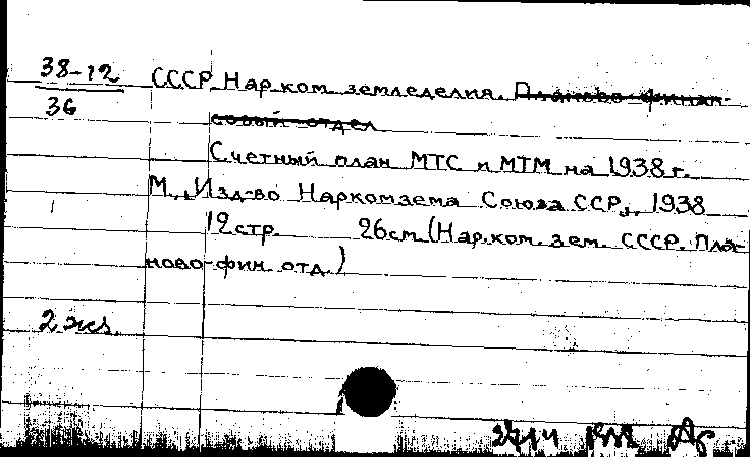 38-12
36
СССР. Нар.ком. земледелия. Планово-финан-
совый отдел
Счетный план МТС и МТМ на 1938 г.
М., "Изд-во Наркомзема Союза ССР", 1938
12 стр. 26 см. (Нар.ком. зем. СССР. Пла-
ново-фин. отд.)
2 экз.